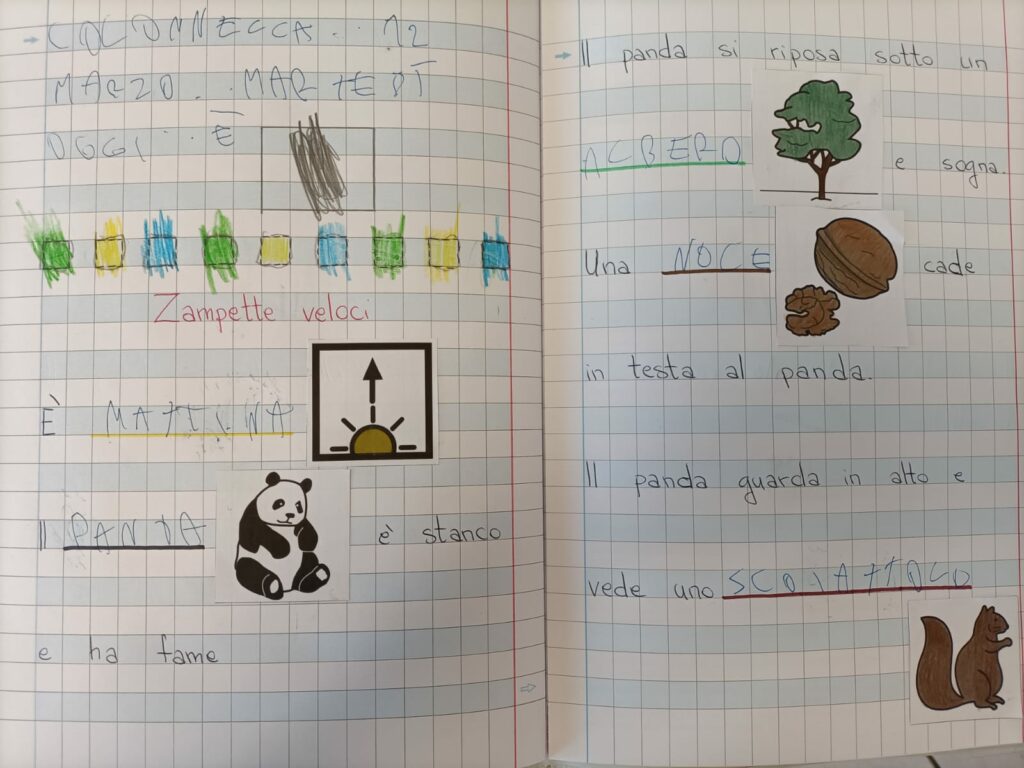 COLONNELLA.. 12
MARZO.. MARTEDÌ
OGGI.. È
Zampette veloci
È MATTINA
Il PANDA è stanco
e ha fame
Il panda si riposa sotto un
ALBERO e sogna.
Una NOCE cade
in testa al panda.
Il panda guarda in alto e
vede uno SCOIATTOLO